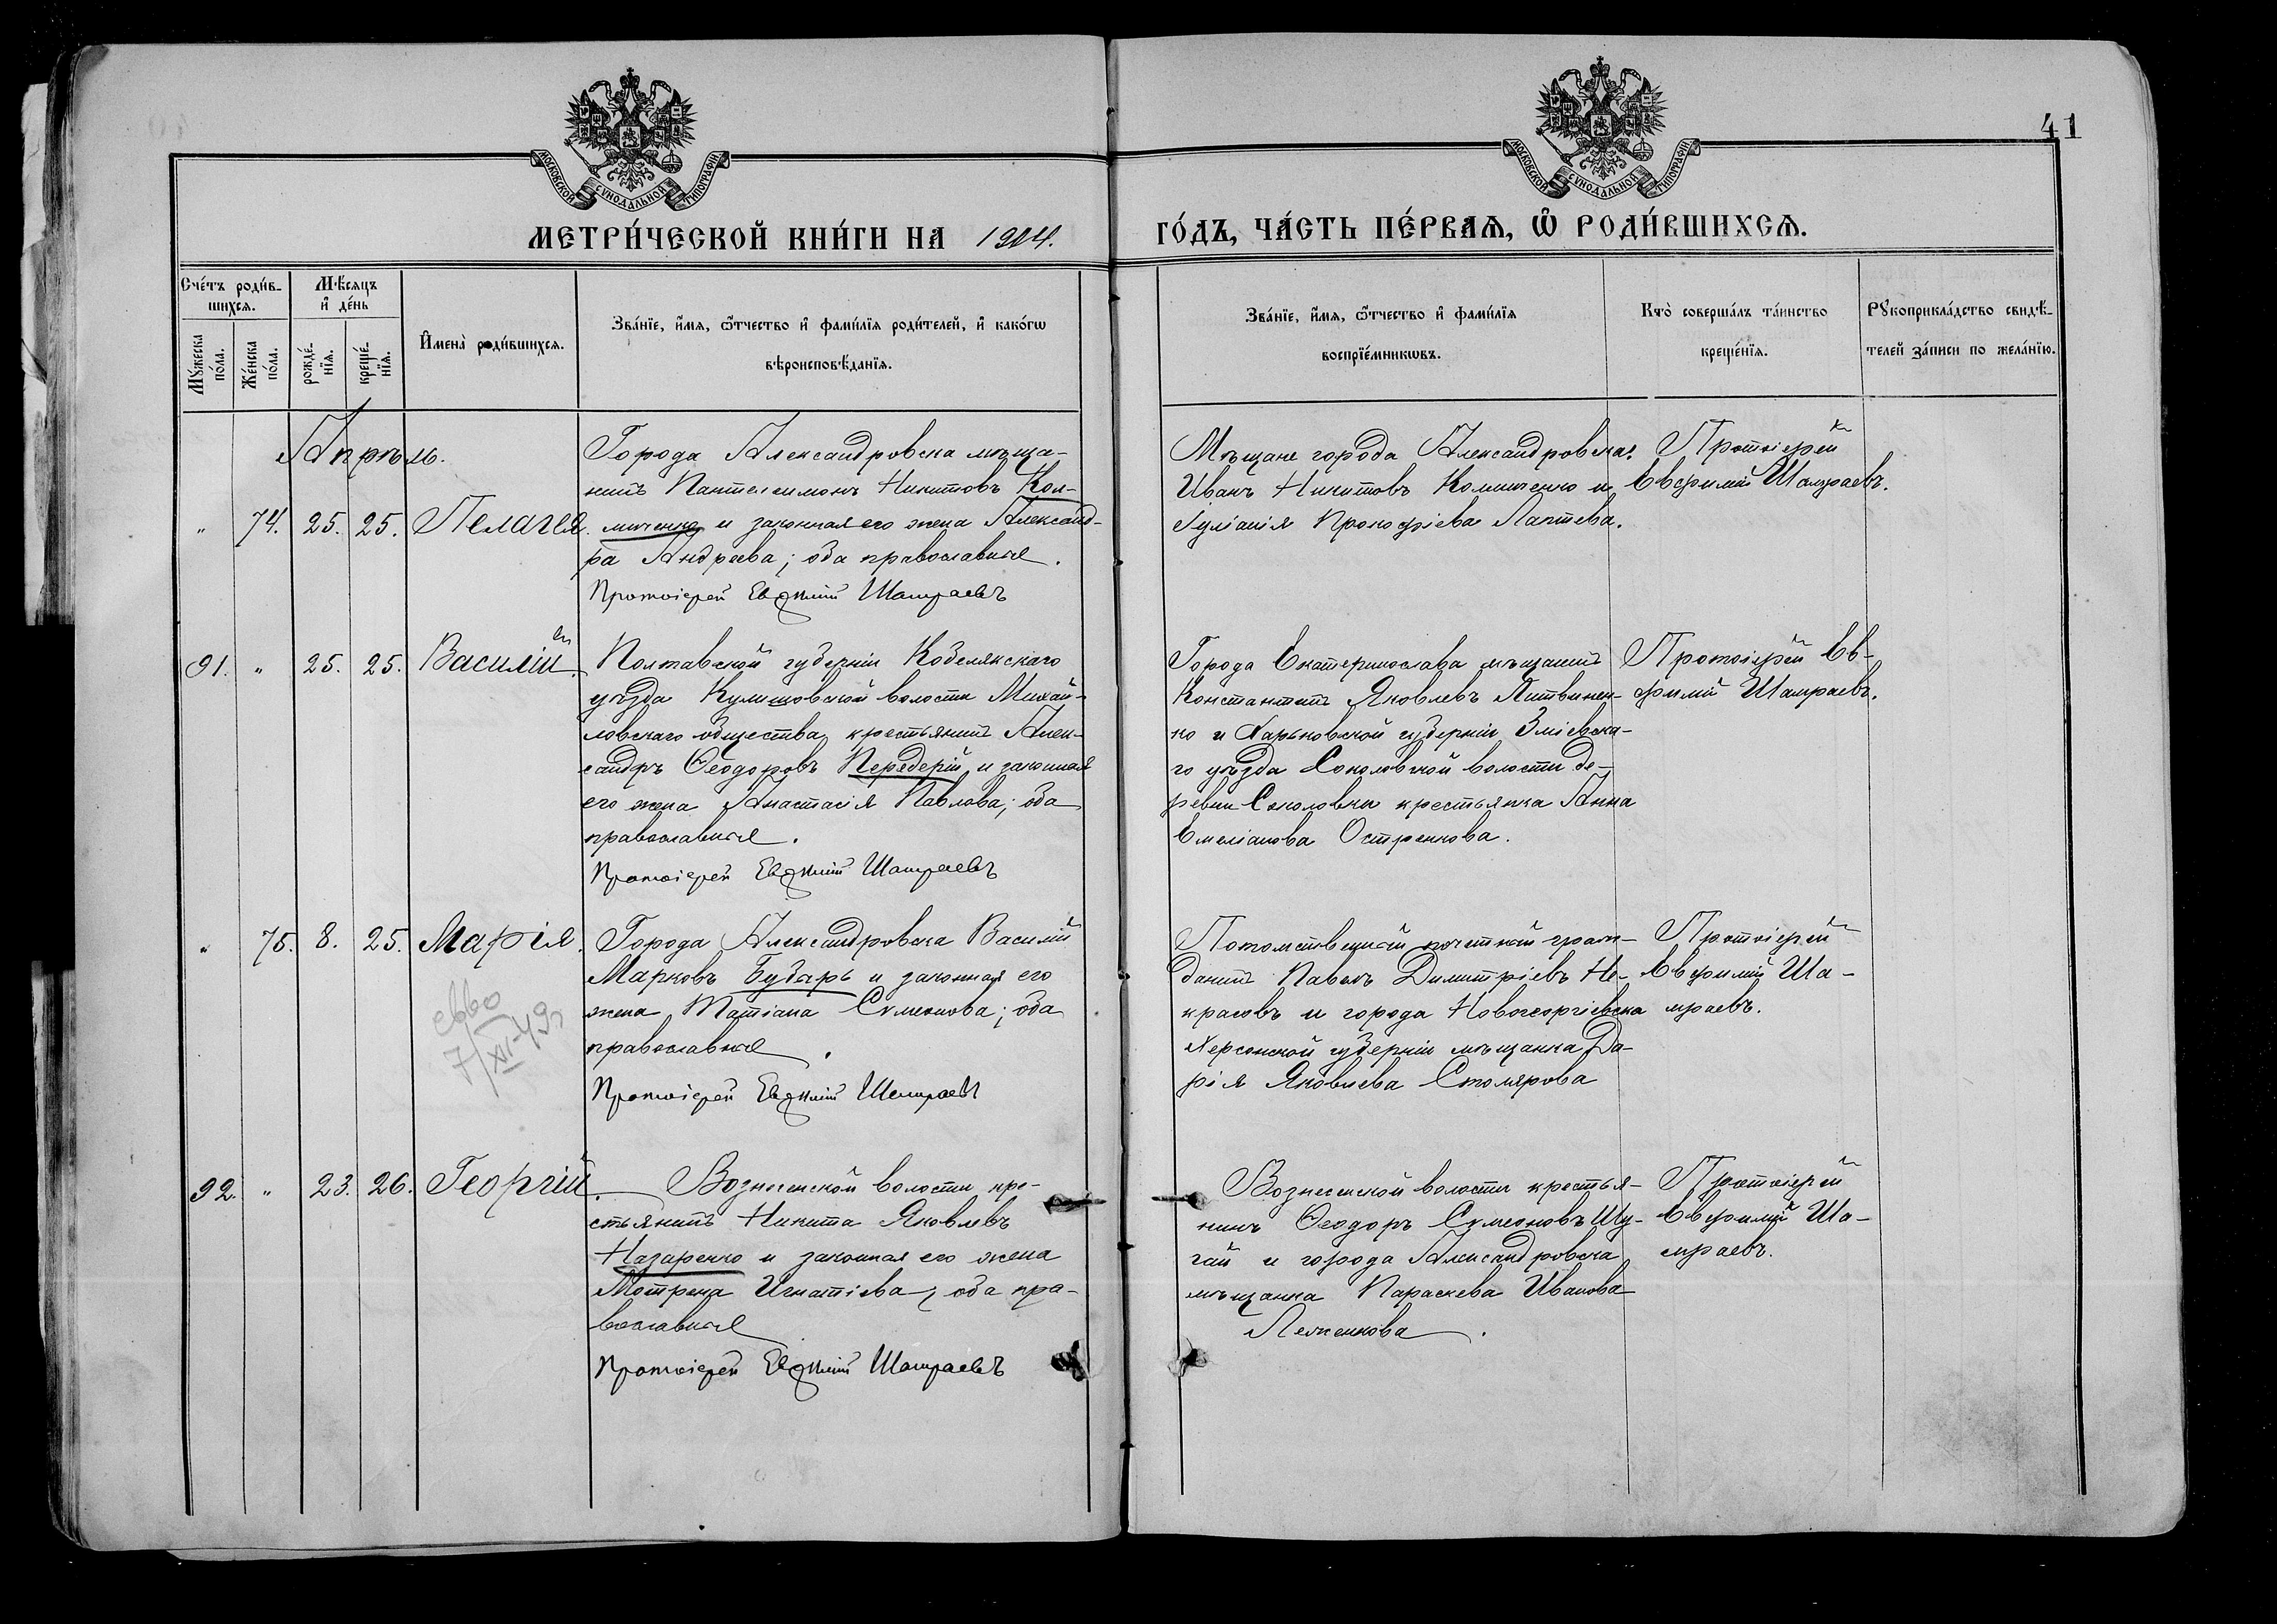 41
МОСКОВСКОЙ СѴНОДАЛЬНОЙ ТИПОГРАФІИ
МОСКОВСКОЙ СѴНОДАЛЬНОЙ ТИПОГРАФІИ
МЕТРИ́ЧЕСКОЙ КНИ́ГИ НА 1904.
ГО́ДЪ, ЧА́СТЬ ПЕ́РВАѦ, Ѽ РОДИ́ВШИХСѦ.
Сче́тъ роди́в-
шихсѧ.
Мѣ́сѧцъ
и҆ де́нь
Мꙋ́жеска по́ла.
Же́нска по́ла.
рожде́-
нїѧ.
креще́-
нїѧ.
И҆мена̀ роди́вшихсѧ.
Зва́нїе, и҆́мѧ, ѻ҆́тчество и҆ фами́лїѧ роди́телей, и҆ како́гѡ
вѣроисповѣ́данїѧ.
Зва́нїе, и҆́мѧ, ѻ҆́тчество и҆ фами́лїѧ
воспрїе́мникѡвъ.
Кто̀ соверша́лъ та́инство
креще́нїѧ.
Рꙋкоприкла́дство свидѣ́-
телей за́писи по жела́нїю.
Апрѣль.
" 74. 25. 25. Пелагея.
Города Александровска мѣща-
нинъ Пантелеимонъ Никитовъ Кол-
миченко и законная его жена Александ-
ра Андреева; оба православные.
Протоіерей Евѳимій Шамраевъ
Мѣщане города Александровска:
Иванъ Никитовъ Колмиченко и
Іуліанія Прокофіева Лаптева.
Протоіерей
Евфимій Шамраевъ.
91. " 25. 25. Василій.
Полтавской губерніи Кобелякскаго
уѣзда Кулишовской волости Михай-
ловскаго общества крестьянинъ Алек-
сандръ Ѳеодоровъ Передерій и законная
его жена Анастасія Павлова; оба
православные.
Протоіерей Евѳимій Шамраевъ
Города Екатеринослава мѣщанинъ
Константинъ Яковлевъ Литвинен-
ко и Харьковской губерніи Зміевска-
го уѣзда Соколовской волости де-
ревни Соколовки крестьянка Анна
Емеліанова Остренкова.
Протоіерей Ев-
фимій Шамраевъ.
" 75. 8. 25. Марія.
7/XI-49г
Города Александровска Василій
Марковъ Бубырь и законная его
жена Татіана Сумеонова; оба
православные.
Протоіерей Евѳимій Шамраевъ
Потомственный почетный граж-
данинъ Павелъ Димитріевъ Не-
красовъ и города Новогеоргіевска
Херсонской губерніи мѣщанка Да-
рія Яковлева Столярова
Протоіерей
Евфимій Ша-
мраевъ.
92. " 23. 26. Георгій.
Вознесенской волости кре-
стьянинъ Никита Яковлевъ
Назаренко и законная его жена
Мотрена Игнатіева, оба пра-
вославные
Протоіерей Евѳимій Шамраевъ
Вознесенской волости крестья-
нинъ Ѳеодоръ Сумеоновъ Шу-
гай и города Александровска
мѣщанка Параскева Иванова
Протоіерей
Евфимій Ша-
мраевъ.